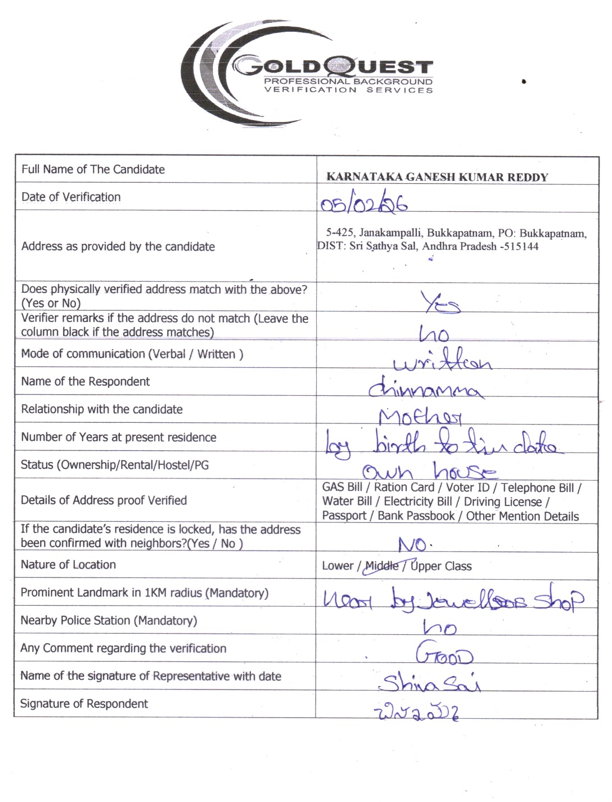 GOLDQUEST
PROFESSIONAL BACKGROUND
VERIFICATION SERVICES
Full Name of The Candidate
KARNATAKA GANESH KUMAR REDDY
Date of Verification
05/02/26
Address as provided by the candidate
5-425, Janakampalli, Bukkapatnam, PO: Bukkapatnam,
DIST: Sri Sathya Sal, Andhra Pradesh -515144
Does physically verified address match with the above?
(Yes or No)
Yes
Verifier remarks if the address do not match (Leave the
column black if the address matches)
no
Mode of communication (Verbal / Written )
written
Name of the Respondent
chinnamma
Relationship with the candidate
Mother
Number of Years at present residence
by birth to date
Status (Ownership/Rental/Hostel/PG
own house
Details of Address proof Verified
GAS Bill / Ration Card / Voter ID / Telephone Bill /
Water Bill / Electricity Bill / Driving License /
Passport / Bank Passbook / Other Mention Details
If the candidate's residence is locked, has the address
been confirmed with neighbors?(Yes / No )
NO.
Nature of Location
Lower / Middle / Upper Class
Prominent Landmark in 1KM radius (Mandatory)
near by Jewellers shop
Nearby Police Station (Mandatory)
no
Any Comment regarding the verification
GOOD
Name of the signature of Representative with date
Shiva Sai
Signature of Respondent